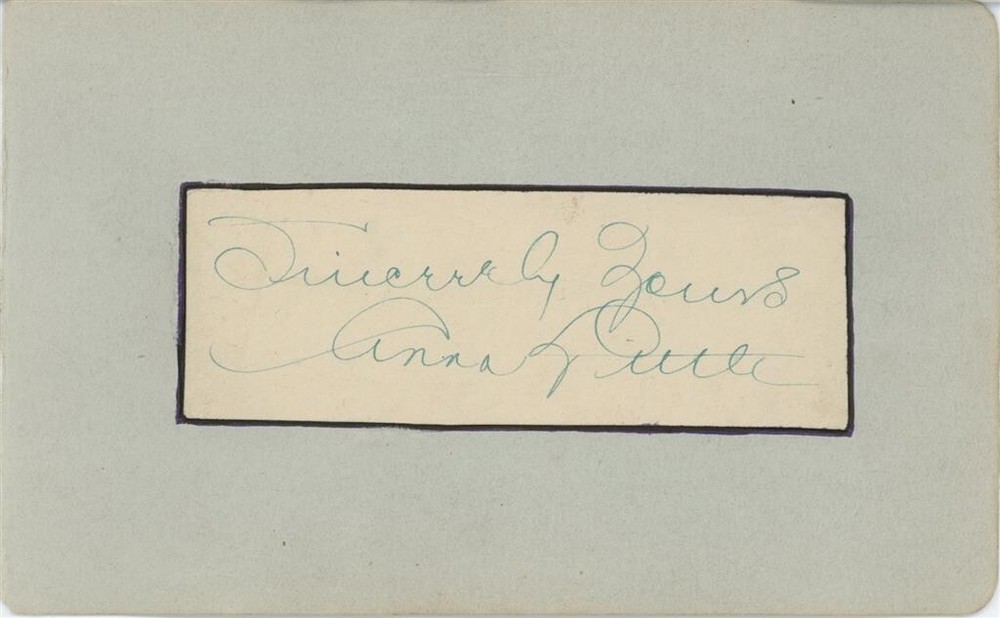 Sincerely Yours
Anna Little